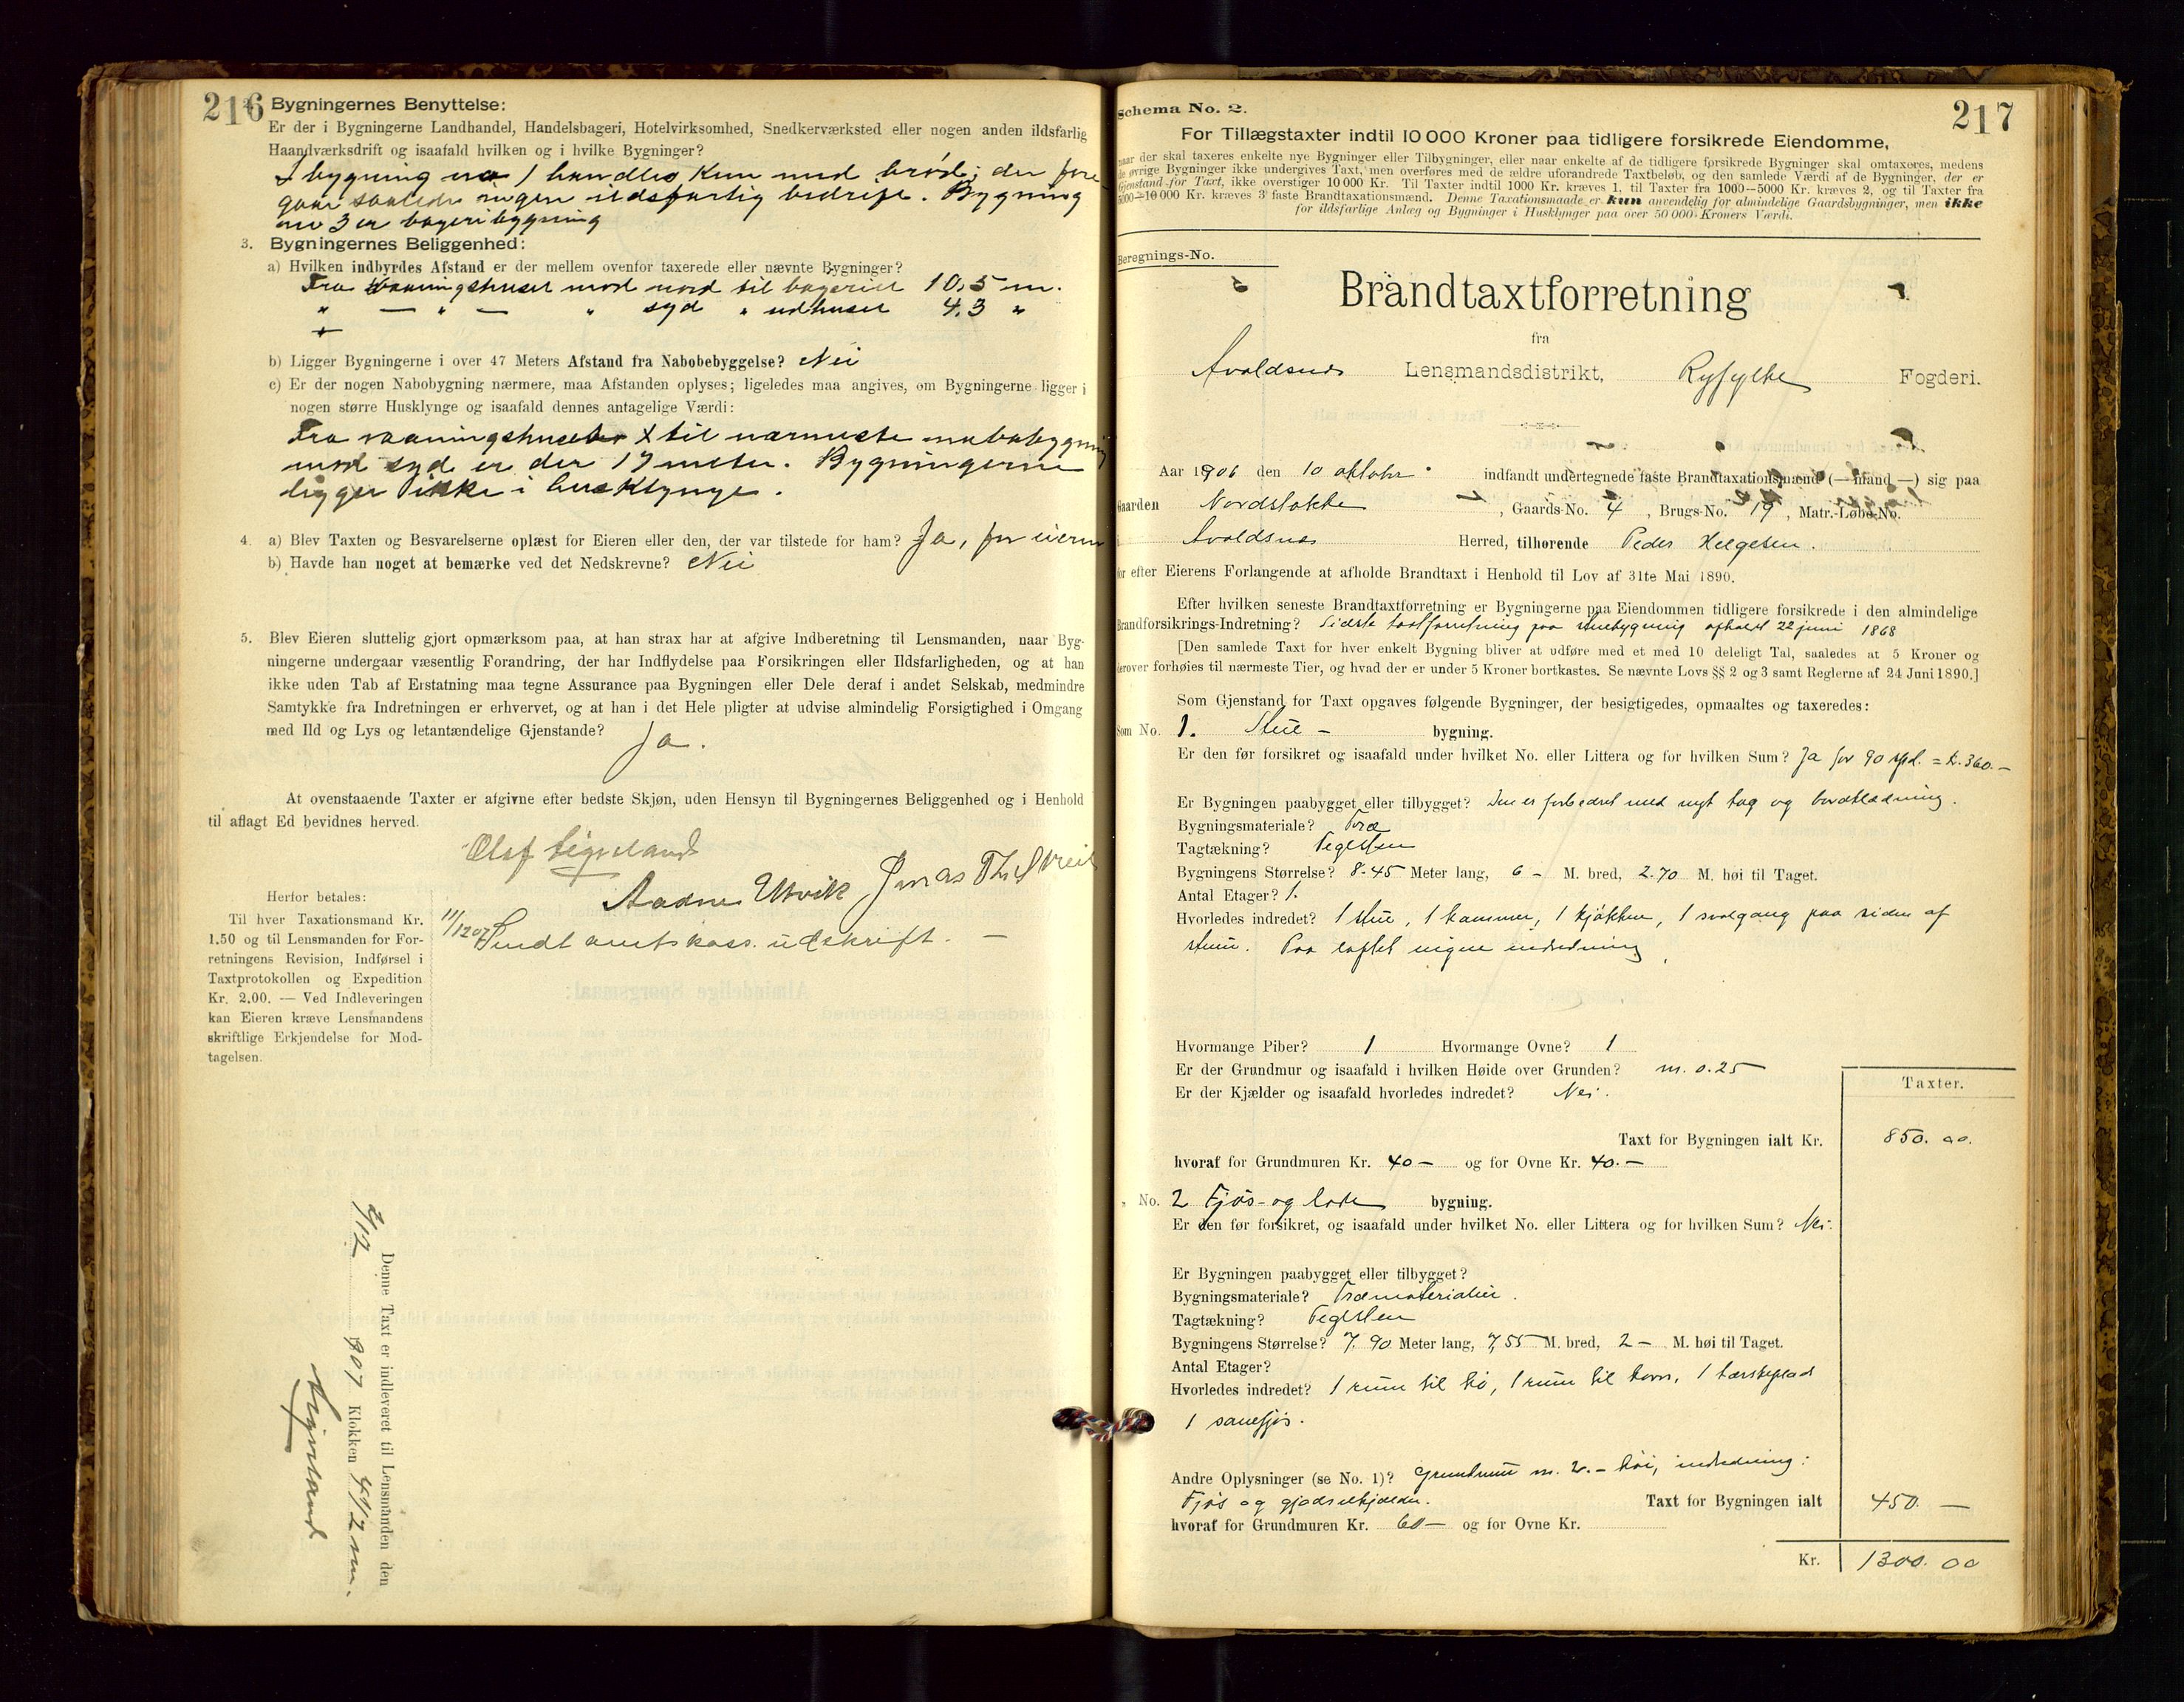 216
Bygningernes Benyttelse:
Er der i Bygningerne Landhandel, Handelsbageri, Hotelvirksomhed, Snedkerværksted eller nogen anden ildsfarlig
Haandværksdrift og isaafald hvilken og i hvilke Bygninger?
I bygning no 1 handles kun med brød; der fore-
gaar saaledes ingen ildsfarlig bedrift. Bygning
no 3 er bageribygning
3. Bygningernes Beliggenhed:
a) Hvilken indbyrdes Afstand er der mellem ovenfor taxerede eller nævnte Bygninger?
Fra vaaningshuset mod nord til bageriet 10,5 m.
" — " — " syd " udhuset 4.3 "
+
b) Ligger Bygningerne i over 47 Meters Afstand fra Nabobebyggelse? Nei
c) Er der nogen Nabobygning nærmere, maa Afstanden oplyses; ligeledes maa angives, om Bygningerne ligger i
nogen større Husklynge og isaafald dennes antagelige Værdi:
Fra vaaningshuset til nærmeste nabobygning
mod syd er der 17 meter. Bygningerne
ligger ikke i husklynge.
4. a) Blev Taxten og Besvarelserne oplæst for Eieren eller den, der var tilstede for ham? Ja, for eieren
b) Havde han noget at bemærke ved det Nedskrevne? Nei
5. Blev Eieren sluttelig gjort opmærksom paa, at han strax har at afgive Indberetning til Lensmanden, naar Byg-
ningerne undergaar væsentlig Forandring, der har Indflydelse paa Forsikringen eller Ildsfarligheden, og at han
ikke uden Tab af Erstatning maa tegne Assurance paa Bygningen eller Dele deraf i andet Selskab, medmindre
Samtykke fra Indretningen er erhvervet, og at han i det Hele pligter at udvise almindelig Forsigtighed i Omgang
med Ild og Lys og letantændelige Gjenstande? Ja.
At ovenstaaende Taxter er afgivne efter bedste Skjøn, uden Hensyn til Bygningernes Beliggenhed og i Henhold
til aflagt Ed bevidnes herved.
Olaf Eigeland
Aadne Utvik Jonas
11/12 07 Sendt amtskass. udskrift. —
Herfor betales:
Til hver Taxationsmand Kr.
1.50 og til Lensmanden for For-
retningens Revision, Indførsel i
Taxtprotokollen og Expedition
Kr. 2.00. — Ved Indleveringen
kan Eieren kræve Lensmandens
skriftlige Erkjendelse for Mod-
tagelsen.
Denne Taxt er indleveret til Lensmanden den
2/12 1907 Klokken 4 1/2 m.
Eigeland
217
Schema No. 2.
For Tillægstaxter indtil 10 000 Kroner paa tidligere forsikrede Eiendomme,
naar der skal taxeres enkelte nye Bygninger eller Tilbygninger, eller naar enkelte af de tidligere forsikrede Bygninger skal omtaxeres, medens
de øvrige Bygninger ikke undergives Taxt, men overføres med de ældre uforandrede Taxtbeløb, og den samlede Værdi af de Bygninger, der er
Gjenstand for Taxt, ikke overstiger 10 000 Kr. Til Taxter indtil 1000 Kr. kræves 1, til Taxter fra 1000—5000 Kr. kræves 2, og til Taxter fra
5000—10 000 Kr. kræves 3 faste Brandtaxationsmænd. Denne Taxationsmaade er kun anvendelig for almindelige Gaardsbygninger, men ikke
for ildsfarlige Anlæg og Bygninger i Husklynger paa over 50 000 Kroners Værdi.
Beregnings-No.
Brandtaxtforretning
fra
Avaldsnes Lensmandsdistrikt, Ryfylke Fogderi.
Aar 1906 den 10 oktober indfandt undertegnede faste Brandtaxationsmænd (—mand —) sig paa
Gaarden Nordstokke, Gaards-No. 4, Brugs-No. 19, Matr.-Løbe-No.
i Avaldsnes Herred, tilhørende Peder Helgesen.
for efter Eierens Forlangende at afholde Brandtaxt i Henhold til Lov af 31te Mai 1890.
Efter hvilken seneste Brandtaxtforretning er Bygningerne paa Eiendommen tidligere forsikrede i den almindelige
Brandforsikrings-Indretning? Sidste taxtforretning paa stuebygning afholdt 22 juni 1868
[Den samlede Taxt for hver enkelt Bygning bliver at udføre med et med 10 deleligt Tal, saaledes at 5 Kroner og
derover forhøies til nærmeste Tier, og hvad der er under 5 Kroner bortkastes. Se nævnte Lovs §§ 2 og 3 samt Reglerne af 24 Juni 1890.]
Som Gjenstand for Taxt opgaves følgende Bygninger, der besigtigedes, opmaaltes og taxeredes:
Som No. 1. Stue - bygning.
Er den før forsikret og isaafald under hvilket No. eller Littera og for hvilken Sum? Ja for 90 spd. = k. 360.-
Er Bygningen paabygget eller tilbygget? Den er forbedret med nyt tag og bordklædning.
Bygningsmateriale? Træ
Tagtækning? Teglsten
Bygningens Størrelse? 8.45 Meter lang, 6 - M. bred, 2.70 M. høi til Taget.
Antal Etager? 1.
Hvorledes indredet? 1 stue, 1 kammer, 1 kjøkken, 1 svalgang paa siden af
stuen. Paa loftet ingen indredning.
Hvormange Piber? 1 Hvormange Ovne? 1
Er der Grundmur og isaafald i hvilken Høide over Grunden? m. 0.25
Er der Kjælder og isaafald hvorledes indredet? Nei.
Taxter.
Taxt for Bygningen ialt Kr. 850. 00.
hvoraf for Grundmuren Kr. 40 — og for Ovne Kr. 40. —
" No. 2 Fjøs- og lade bygning.
Er den før forsikret, og isaafald under hvilket No. eller Littera og for hvilken Sum? Nei.
Er Bygningen paabygget eller tilbygget?
Bygningsmateriale? Træmaterialier.
Tagtækning? Teglsten
Bygningens Størrelse? 7.90 Meter lang, 7,55 M. bred, 2 — M. høi til Taget.
Antal Etager?
Hvorledes indredet? 1 rum til hø, 1 rum til korn, 1 tærskeplads
1 sauefjøs.
Andre Oplysninger (se No. 1)? Grundmur m. 2.- høi, indredning:
Fjøs og gjødselkjælder. Taxt for Bygningen ialt 450. —
hvoraf for Grundmuren Kr. 60 — og for Ovne Kr.
Kr. 1300. 00